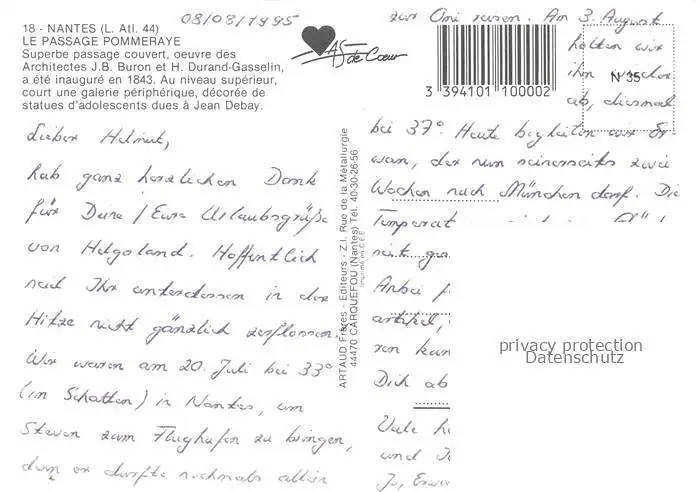 08/08/1995
18 - NANTES (L. Atl. 44)
LE PASSAGE POMMERAYE
Superbe passage couvert, oeuvre des
Architectes J.B. Buron et H. Durand-Gasselin,
a été inauguré en 1843. Au niveau supérieur,
court une galerie périphérique, décorée de
statues d'adolescents dues à Jean Debay.
AS de Cœur
3 394101 100002
N 35
Lieber Helmut,
hab ganz herzlichen Dank
für Deine / Eure Urlaubsgrüße
von Helgoland. Hoffentlich
seid Ihr unterdessen in der
Hitze nicht gänzlich zerflossen.
Wir waren am 20. Juli bei 33°
(im Schatten) in Nantes, um
Steven zum Flughafen zu bringen,
denn er durfte nochmals allein
ARTAUD Frères - Editeurs - Z.I. Rue de la Métallurgie
44470 CARQUEFOU (Nantes) Tél. 40-30-26-56
Imprimé en C.E.E.
zur Omi reisen. Am 3. August
holten wir
ihn wieder
ab, diesmal
bei 37°. Heute begleiten wir Er
wan, der nun seinerseits zwei
Wochen nach München darf. Die
Temperat
seit
Anbei
artikel,
ren kan
Dich ab
Viele h
und
Jo, Erwa
privacy protection
Datenschutz